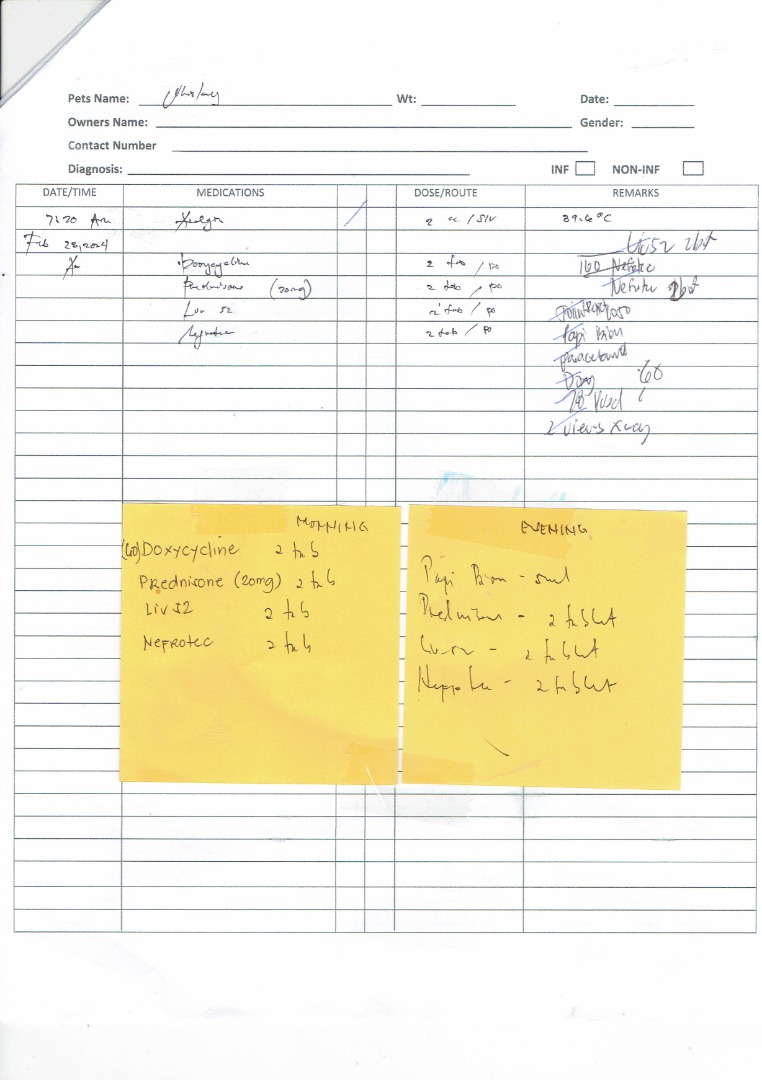 Pets Name: Wt: Date:
Owners Name: Gender:
Contact Number
Diagnosis: INF NON-INF
DATE/TIME MEDICATIONS DOSE/ROUTE REMARKS
7:20 Am 2 cc / SIV 39.6°C
Feb 28, 2024
Liv52 2bot
Am Doxycycline 2 tab / PO 160 Nefrotec
Prednisone (20mg) 2 tab / PO Nefrotec 2bot
Liv 52 2 tab / PO
Nefrotec 2 tab / PO Papi Bion
paracetamol
Doxy 60
2 views xray
MORNING
(60) DOXYCYCLINE 2 tab
PREDNISONE (20mg) 2 tab
LIV 52 2 tab
NEFROTEC 2 tab
EVENING
Papi Bion - 5ml
Prednisone - 2 tablet
Liv 52 - 2 tablet
- 2 tablet